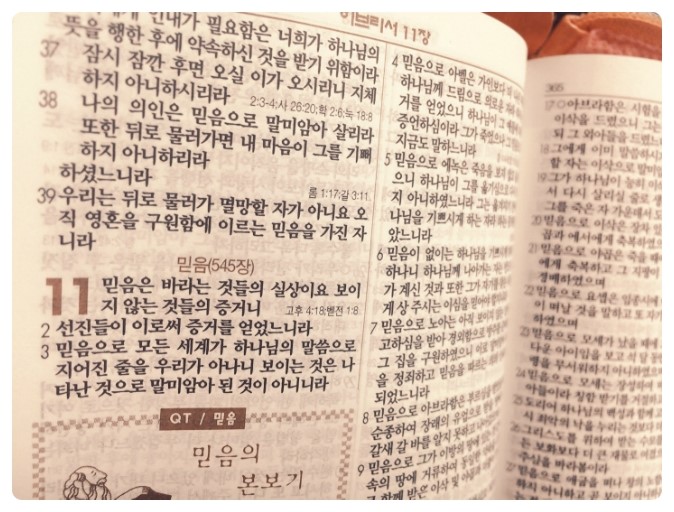 히브리서 11장
인내가 필요함은 너희가 하나님의
뜻을 행한 후에 약속하신 것을 받기 위함이라
37 잠시 잠깐 후면 오실 이가 오시리니 지체
하지 아니하시리라 2:3-4;사 26:20;학 2:6;눅 18:8
38 나의 의인은 믿음으로 말미암아 살리라
또한 뒤로 물러가면 내 마음이 그를 기뻐
하지 아니하리라
하셨느니라 롬 1:17;갈 3:11
39 우리는 뒤로 물러가 멸망할 자가 아니요 오
직 영혼을 구원함에 이르는 믿음을 가진 자
니라
믿음(545장)
11 믿음은 바라는 것들의 실상이요 보이
지 않는 것들의 증거니 고후 4:18;벧전 1:8
2 선진들이 이로써 증거를 얻었느니라
3 믿음으로 모든 세계가 하나님의 말씀으로
지어진 줄을 우리가 아나니 보이는 것은 나
타난 것으로 말미암아 된 것이 아니니라
QT / 믿음
믿음의
본보기
4 믿음으로 아벨은 가인보다
하나님께 드림으로 의로운
거를 얻었으니 하나님이 그
증언하심이라 그가 죽었으나
지금도 말하느니라
5 믿음으로 에녹은 죽음을 보지
으니 하나님이 그를 옮기심으로
지 아니하였느니라 그는 옮겨지기
나님을 기쁘시게 하는 자라 하는
았느니라
6 믿음이 없이는 하나님을 기쁘시게
하나니 하나님께 나아가는 자는
가 계신 것과 또한 그가 자기를
게 상 주시는 이심을 믿어야
7 믿음으로 노아는 아직 보이지
고하심을 받아 경외함으로
그 집을 구원하였으니 이로
을 정죄하고 믿음을 따르는
되었느니라
8 믿음으로 아브라함은 부르심을
순종하여 장래의 유업으로
갈새 갈 바를 알지 못하고
9 믿음으로 그가 이방의 땅에
속의 땅에 거류하여
함께 받은 이삭 및 야곱과
365
17 아브라함은 시험을
이삭을 드렸으니 그는
되 그 외아들을 드렸느니라
18 그에게 이미 말씀하시기를
한 자는 이삭으로 말미암으리라
19 그가 하나님이 능히 이삭을
서 다시 살리실 줄로
그를 죽은 자 가운데서
20 믿음으로 이삭은 장차
곱과 에서에게 축복하였으며
21 믿음으로 야곱은 죽을 때에
에게 축복하고 그 지팡이
경배하였으며
22 믿음으로 요셉은 임종시에
이 떠날 것을 말하고 또 자기
하였으며
23 믿음으로 모세가 났을 때에
다운 아이임을 보고 석 달
명을 무서워하지 아니하였으며
24 믿음으로 모세는 장성하여
아들이라 칭함 받기를 거절하고
25 도리어 하나님의 백성과 함께
시 죄악의 낙을 누리는 것보다
26 그리스도를 위하여 받는 수모를
든 보화보다 더 큰 재물로 여겼으니
주심을 바라봄이라
27 믿음으로 애굽을 떠나 왕의 노함을
하지 아니하고 곧 보이지 아니하는